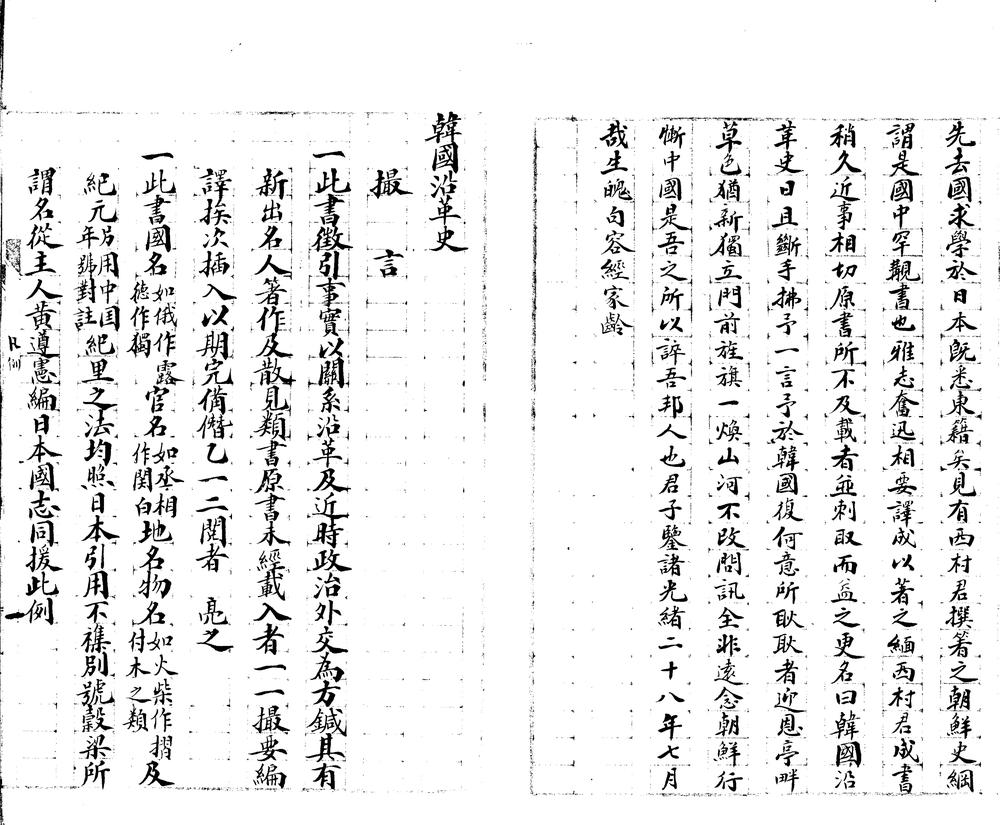 先去國求學於日本既悉東籍矣見有西村君撰著之朝鮮史綱
謂是國中罕觀書也雅志奮迅相要譯成以著之緬西村君成書
稍久近事相切原書所不及載者並刺取而益之更名曰韓國沿
革史日且斷手拂予一言予於韓國復何意所耿耿者迎恩亭畔
草色猶新獨立門前旌旗一煥山河不改問訊全非遠念朝鮮行
慚中國是吾之所以誶吾邦人也君子鑒諸光緒二十八年七月
哉生魄句容經家齡
韓國沿革史
撮言
一此書徵引事實以關系沿革及近時政治外交為方鍼其有
新出名人著作及散見類書原書未經載入者一一撮要編
譯挨次插入以期完備僭乙一二閱者亮之
一此書國名如俄作露德作獨官名如丞相作関白地名物名如火柴作摺付木之類及
紀元另用中国年號對註紀里之法均照日本引用不襍別號穀梁所
謂名從主人黃遵憲編日本國志同援此例